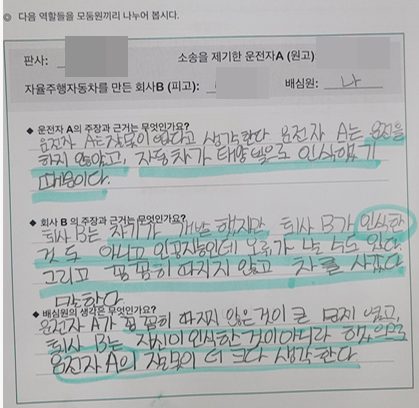 ◎ 다음 역할들을 모둠원끼리 나누어 봅시다.
판사:
소송을 제기한 운전자A (원고)
자율주행자동차를 만든 회사B (피고):
배심원: 나
◆ 운전자 A의 주장과 근거는 무엇인가요?
운전자 A는 잘못이 없다고 생각한다 운전자 A는 운전을
하지 않았고, 자동차가 태양빛으로 인식했기
때문이다.
◆ 회사 B의 주장과 근거는 무엇인가요?
회사 B는 자기가 개발 했지만 회사 B가 인식한
것도 아니고 인공지능인데 오류가 날 수도 있다.
그리고 꼼꼼히 따지지 않고 차를 샀다
말한다
◆ 배심원의 생각은 무엇인가요?
운전자 A가 꼼꼼히 따지지 않은것이 큰 문제 였고,
회사 B는 자신이 인식한 것이 아니라 했으므로
운전자 A의 잘못이 더 크다 생각한다